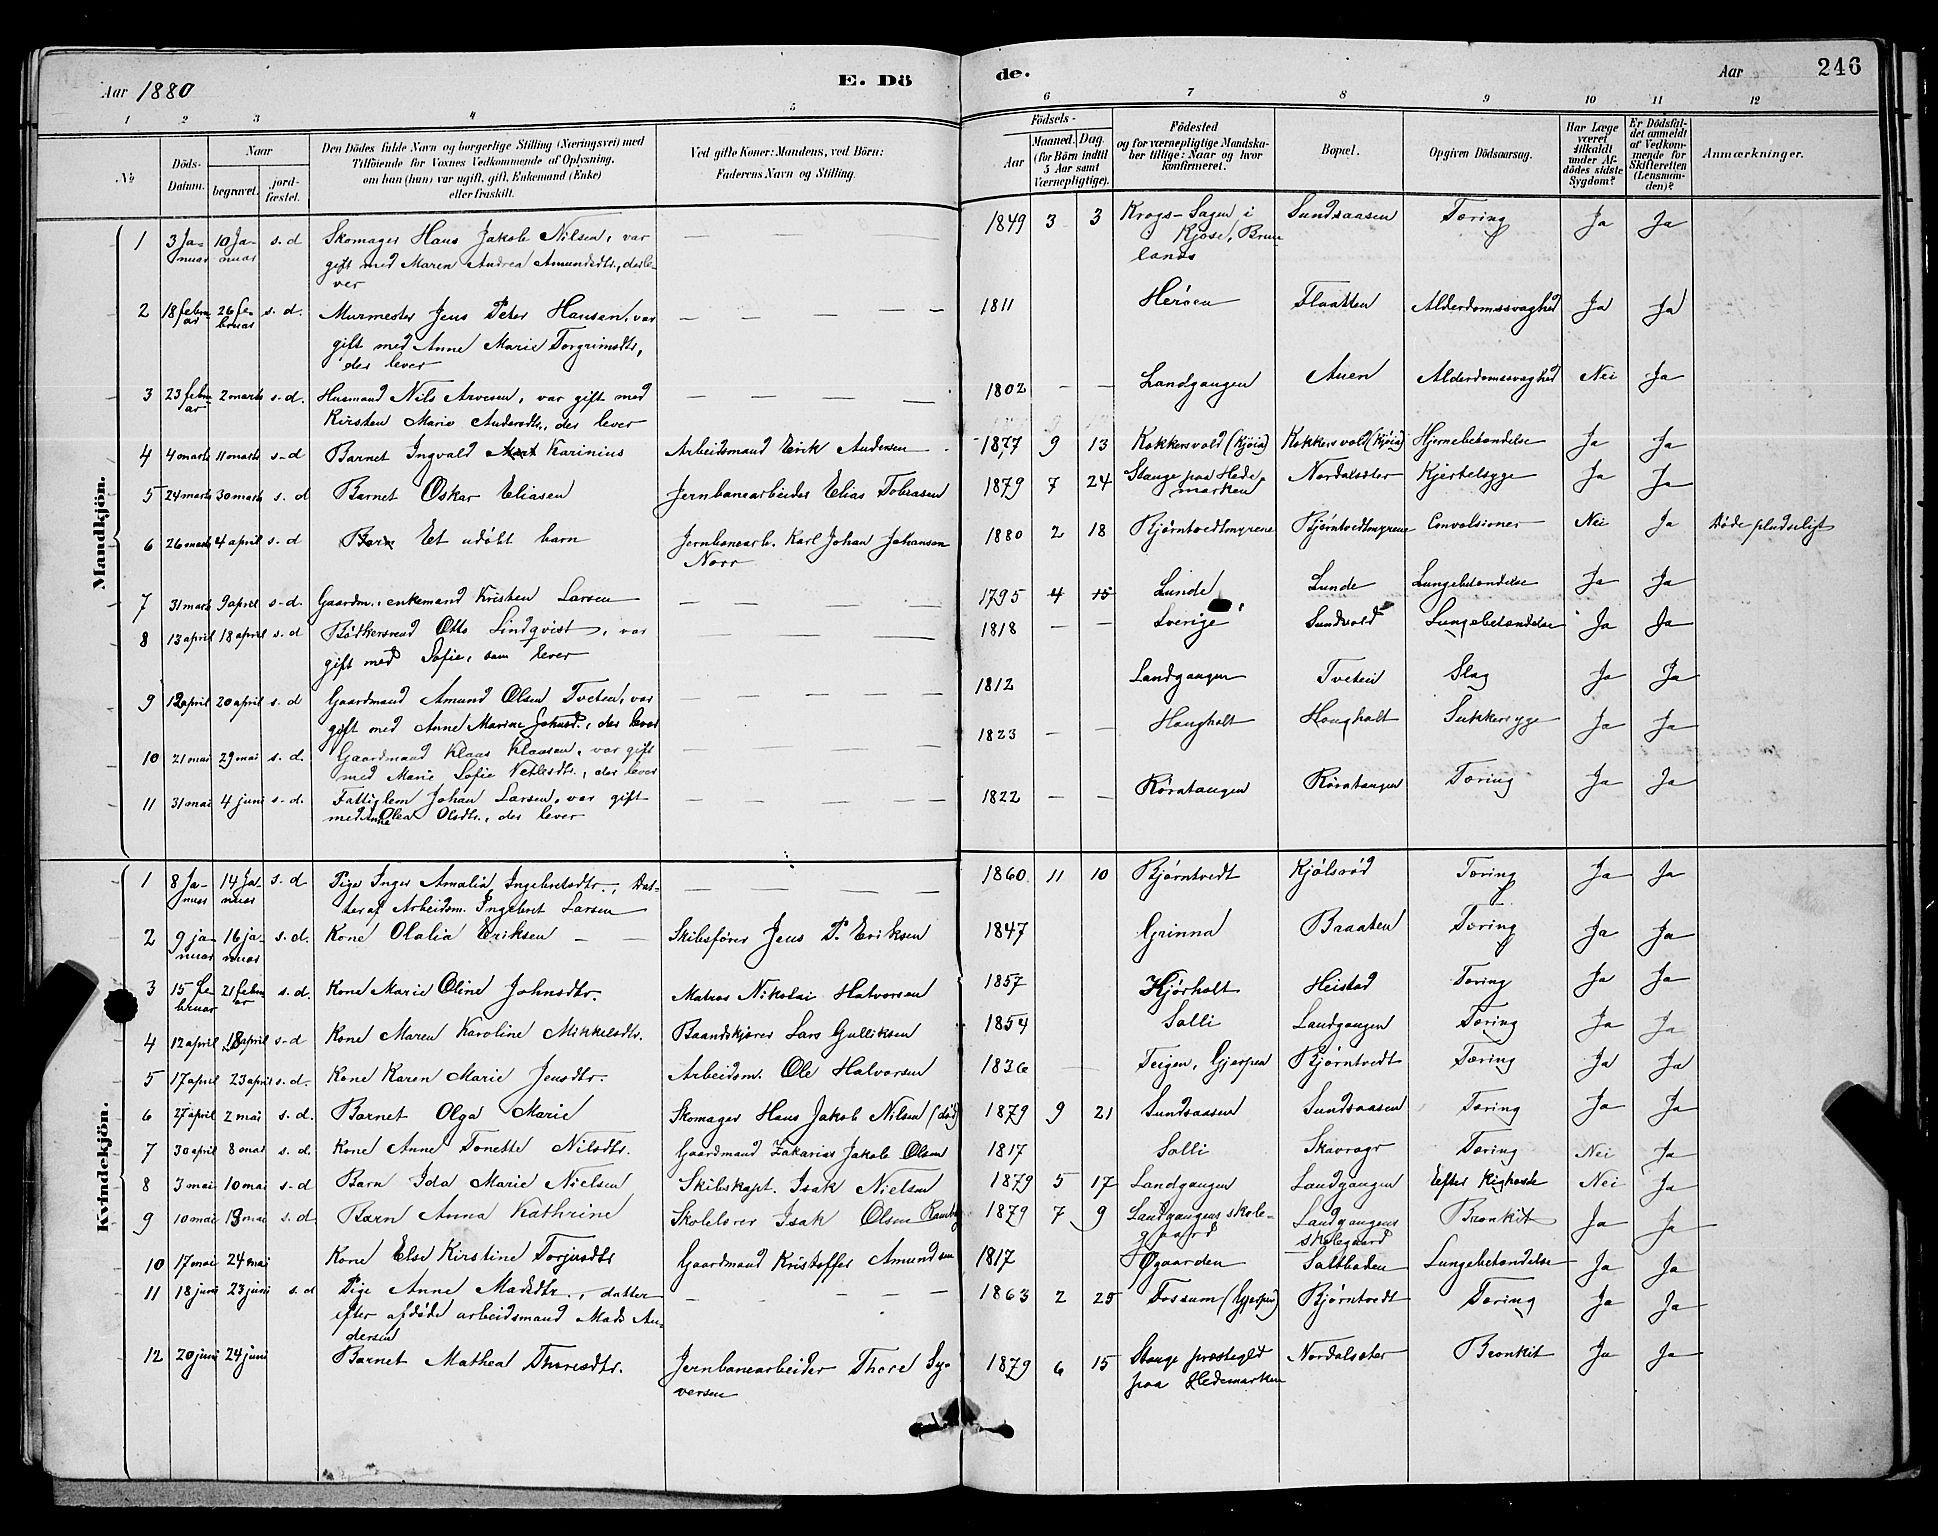 Aar 1880
E. Dö
de.
Aar
246
1 2 3 4 5 6 7 8 9 10 11 12
№
Döds-Datum.
Naar
begravet.
jord-fæstet.
Den Dödes fulde Navn og borgerlige Stilling (Næringsvei) med
Tilföiende for Voxnes Vedkommende af Oplysning,
om han (hun) var ugift, gift, Enkemand (Enke)
eller fraskilt.
Ved gifte Koner: Mandens, ved Börn:
Faderens Navn og Stilling.
Födsels-
Aar
Maaned. Dag.
(for Börn indtil
5 Aar samt
Værnepligtige).
Födested
og for værnepligtige Mandska-
ber tillige: Naar og hvor
konfirmeret.
Bopæl.
Opgiven Dödsaarsag.
Har Læge
været
tilkaldt
under Af-
dödes sidste
Sygdom?
Er Dödsfal-
det anmeldt
af Vedkom-
mende for
Skifteretten
(Lensman-
den)?
Anmærkninger.
Mandkjön.
1 3 Ja- 10 Ja- s. d Skomager Hans Jakob Nilsen, var 1849 3 3 Krogs-Sagen i Sundsaasen Tæring Ja Ja
nuar nuar gift med Maren Andrea Amundsdtr., der le- Kjose, Brun-
ver lanes
2 18 febru- 26 fe- s. d. Murmester Jens Peter Hansen, var — — — — 1811 Herøen Flaatten Alderdomssvaghed Ja Ja
ar bruar gift med Anne Marie Torgrimsdtr,
der lever
3 23 febru- 2 marts s-d. Husmand Nils Arvesen, var gift med — — — — 1802 — — Landgangen Auen Alderdomssvaghed Nei Ja
ar Kirsten Marie Andersdtr., der lever
4 4 marts 11 marts s-d Barnet Ingvald Karinius Arbeidsmand Erik Andersen 1877 9 13 Kokkersvold (Kjøia) Kokkersvold (Kjøia) Hjernebetændelse Ja Ja
5 24 marts 30 marts s. d Barnet Oskar Eliasen Jernbanearbeider Elias Tobiasen 1879 7 24 Stange paa Hede- Nordalsæter Kjertelsyge Ja Ja
marken
6 26 marts 4 april s-d Barn Et udøbt barn Jernbanearb. Karl Johan Johansen 1880 2 18 Bjørntvedtmyrene Bjørntvedtmyrene Convolsioner Nei Ja Døde pludseligt
Norr
7 31 marts 9 april s-d. Gaardm., enkemand Kristen Larsen — — — — 1795 4 15 Lunde Lunde Lungebetændelse Ja Ja
8 13 april 18 april s. d Bøtkersvend Otto Lindqvist, var — — — — 1818 — — Sverige Sundvold Lungebetændelse Ja Ja
gift med Sofie, som lever
9 12 april 20 april s. d Gaardmand Amund Olsen Tveten, var — — — — 1812 Landgangen Tveten Slag Ja Ja
gift med Anne Marine Johnsd., der lever
10 21 mai 29 mai s-d. Gaardmand Klaas Klaasen, var gift — — — — 1823 — — Hougholt Hougholt Sukkersyge Ja Ja
med Marie Sofie Netlesdtr., der lever
11 31 mai 4 juni s-d. Fattiglem Johan Larsen, var gift — — — — 1822 — — Røratangen Røratangen Tæring Ja Ja
med Anne Olea Olsdtr., der lever
Kvindekjön.
1 8 Ja- 14 Ja- s-d Pige Inger Amalia Ingebretsdtr., Dat- — — — — 1860 11 10 Bjørntvedt Kjølsrød Tæring Ja Ja
nuar nuar ter af Arbeidsm. Ingebret Larsen
2 9 ja- 16 ja- s. d. Kone Olalia Eriksen — — Skibsfører Jens P. Eriksen 1847 Grinna Braaten Tæring Ja Ja
nuar nuar
3 15 fe- 21 febru- s. d. Kone Marie Oline Johnsdtr. Matros Nikolai Halvorsen 1857 Hjørholt Heistad Tæring Ja Ja
bruar ar
4 12 april 18 april s-d Kone Maren Karoline Mikkelsdtr. Baandskjærer Lars Gulliksen 1854 Salli Landgangen Tæring Ja Ja
5 17 april 23 april s. d. Kone Karen Marie Jensdtr. Arbeidsm. Ole Halvorsen 1836 Teigen, Gjerpen Bjørntvedt Tæring Ja Ja
6 27 april 2 mai s. d. Barnet Olga Marie Skomager Hans Jakob Nilsen (død) 1879 9 21 Sundsaasen Sundsaasen Tæring Ja Ja
7 30 april 8 mai s. d. Kone Anne Tonette Nilsdtr. Gaardmand Zakarias Jakob Olsen 1817 Salli Skavrager Tæring Nei Ja
8 3 mai 10 mai s-d Barn Ida Marie Nielsen Skibskapt. Isak Nielsen 1879 5 17 Landgangen Landgangen Efter Kighoste Nei Ja
9 10 mai 13 mai s. d Barn Anna Kathrine Skolelærer Isak Olsen 1879 7 9 Landgangens skole- Landgangens Bronkit Ja Ja
gaard skolegaard
10 17 mai 24 mai Kone Else Kirstine Torjersdtr Gaardmand Kristoffer Amundsen 1817 Øgaarden Saltboden Lungebetændelse Ja Ja
11 18 juni 23 juni s. d Pige Anne Madsdtr., datter — — — — 1863 2 25 Fossum (Gjerpen) Bjørntvedt Tæring Ja Ja
efter afdøde arbeidsmand Mads An-
dersen
12 20 juni 24 juni Barnet Mathea Thoresdtr. Jernbanearbeider Thore Sy- 1879 6 15 Stange præstegjeld Nordalsæter Bronkit Ja Ja
versen paa Hedemarken